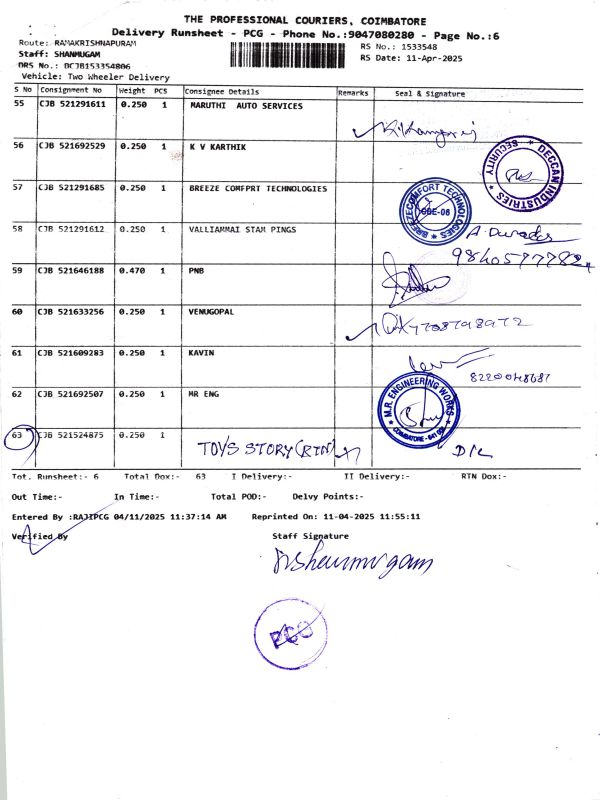 THE PROFESSIONAL COURIERS, COIMBATORE
Delivery Runsheet - PCG - Phone No.:9047080280 - Page No.:6
Route: RAMAKRISHNAPURAM
RS No.: 1533548
Staff: SHANMUGAM
RS Date: 11-Apr-2025
DRS No.: DCJB153354806
Vehicle: Two Wheeler Delivery
S No Consignment No Weight PCS Consignee Details Remarks Seal & Signature
55 CJB 521291611 0.250 1 MARUTHI AUTO SERVICES
56 CJB 521692529 0.250 1 K V KARTHIK
DECCAN INDUSTRIES
SECURITY
57 CJB 521291685 0.250 1 BREEZE COMFPRT TECHNOLOGIES
BREEZECOMFORT TECHNOLOGIES
58 CJB 521291612 0.250 1 VALLIAMMAI STAM PINGS
9840577782
59 CJB 521646188 0.470 1 PNB
60 CJB 521633256 0.250 1 VENUGOPAL
61 CJB 521609283 0.250 1 KAVIN
62 CJB 521692507 0.250 1 MR ENG
M.R. ENGINEERING WORKS
63 CJB 521524875 0.250 1 TOYS STORY (RTN)
D/L
Tot. Runsheet:- 6 Total Dox:- 63 I Delivery:- II Delivery:- RTN Dox:-
Out Time:- In Time:- Total POD:- Delvy Points:-
Entered By :RAJIPCG 04/11/2025 11:37:14 AM Reprinted On: 11-04-2025 11:55:11
Verified By Staff Signature
PCG